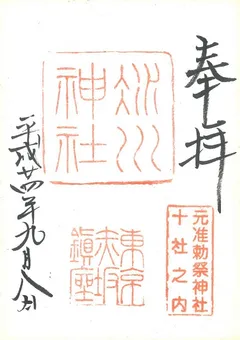 奉拝
氷川
神社
元准勅祭神社
十社之内
東京
赤坂
鎮座
平成廿四年九月八日